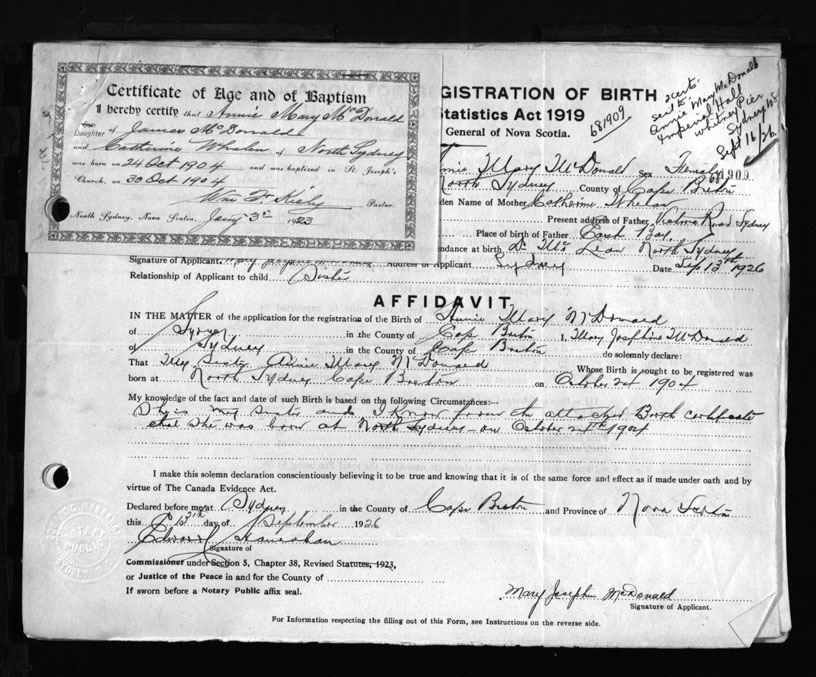 Certificate of Age and of Baptism
I hereby certify that Annie Mary McDonald
Son
Daughter of James McDonald
and Catherine Whalen of North Sydney
was born on 24 Oct 1904 and was baptized in St. Joseph's
Church, on 30 Oct 1904
Wm F. Kiely Pastor.
North Sydney, Nova Scotia, Jany 3rd 1923
EGISTRATION OF BIRTH
Statistics Act 1919
General of Nova Scotia.
681909
sent to
Annie Mary McDonald
Imperial Hall
Whitney Pier
Sydney NS
Sept 16/26
nnie Mary McDonald Sex Female
909
North Sydney County of Cape Breton
den Name of Mother Catherine Whelan
Present address of Father Victoria Road Sydney
Place of birth of Father East Bay
endance at birth Dr McLean North Sydney
Signature of Applicant Mary Josephine Address of Applicant Sydney Date Sep 13th 1926
Relationship of Applicant to child Sister
AFFIDAVIT
IN THE MATTER of the application for the registration of the Birth of Annie Mary McDonald
of Sydney in the County of Cape Breton I, Mary Josephine McDonald
of Sydney in the County of Cape Breton do solemnly declare:
That My Sister Annie Mary McDonald Whose Birth is sought to be registered was
born at North Sydney Cape Breton on October 24 1904
My knowledge of the fact and date of such Birth is based on the following Circumstances:—
She is my sister and I know from the attached Birth certificate
that she was born at North Sydney on October 24th 1904
I make this solemn declaration conscientiously believing it to be true and knowing that it is of the same force and effect as if made under oath and by
virtue of The Canada Evidence Act.
Declared before me at Sydney in the County of Cape Breton and Province of Nova Scotia
this 13th day of September 1926
Edward Hanrahan
Signature of
Commissioner under Section 5, Chapter 38, Revised Statutes, 1923,
or Justice of the Peace in and for the County of
If sworn before a Notary Public affix seal.
Mary Josephine McDonald
Signature of Applicant.
For Information respecting the filling out of this Form, see Instructions on the reverse side.